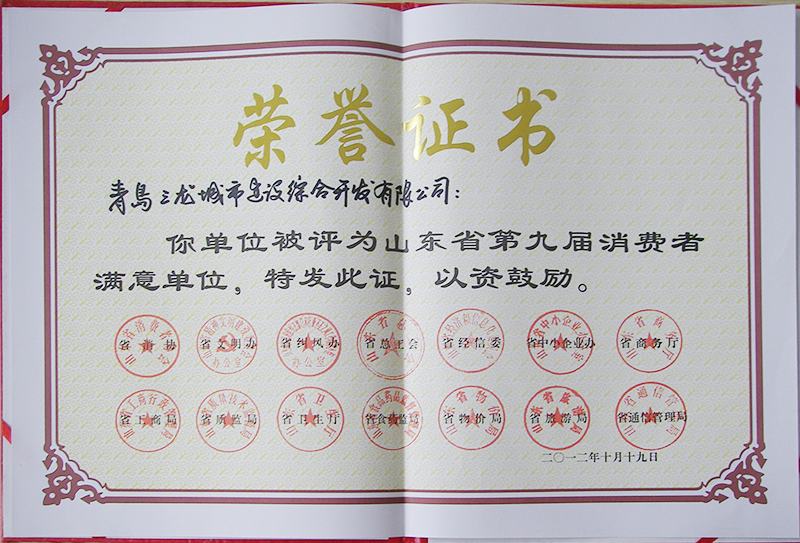 荣誉证书
青岛三龙城市建设综合开发有限公司：
你单位被评为山东省第九届消费者
满意单位，特发此证，以资鼓励。
省消协 省文明办 省纠风办 省总工会 省经信委 省中小企业办 省商务厅
省工商局 省质监局 省卫生厅 省食药监局 省物价局 省旅游局 省通信管理局
二〇一二年十月十九日